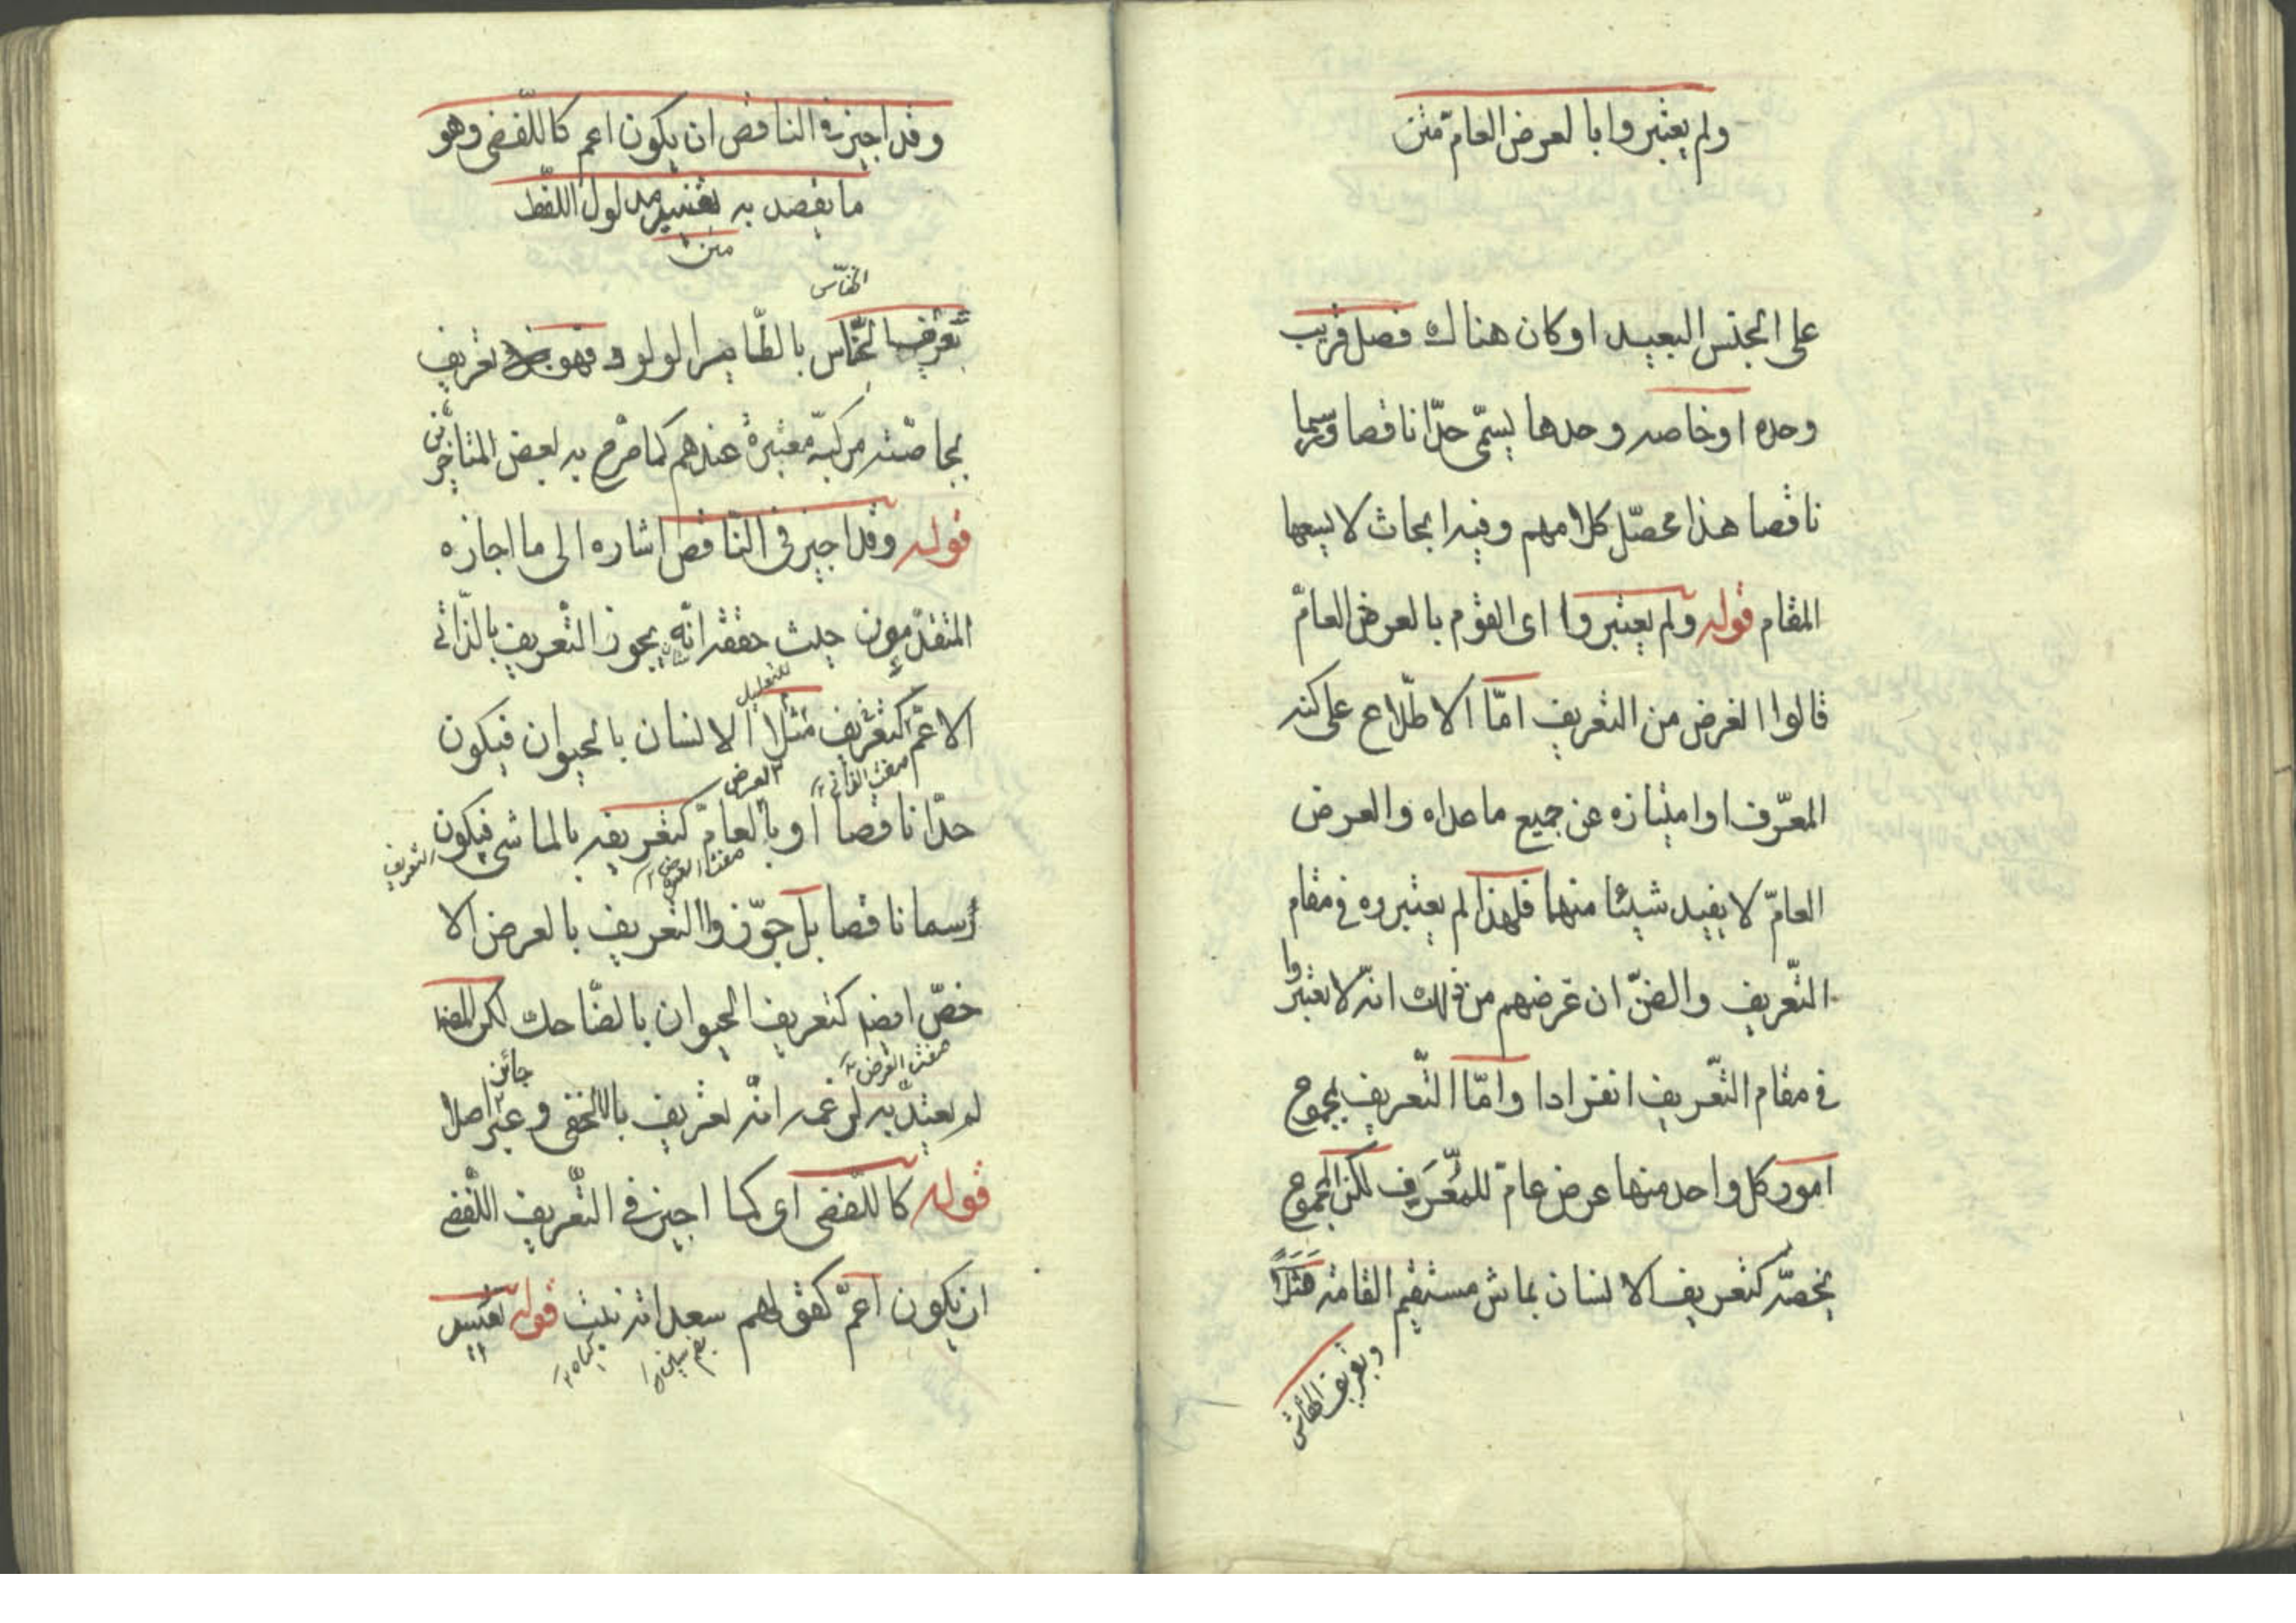 ولم يعتبروا بالعرض العامّ متن
على الجنس البعيد او كان هناك فصل قريب
وحده او خاصه وحدها يسمّى حدّا ناقصا ورسما
ناقصا هذا محصّل كلامهم وفيه ابحاث لا يسعها
المقام قوله ولم يعتبروا اى القوم بالعرض العامّ
قالوا الغرض من التعريف امّا الاطّلاع على كنه
المعرّف او امتيازه عن جميع ما عداه والعرض
العامّ لا يفيد شيئا منهما فلهذا لم يعتبروه فى مقام
التّعريف والضنّ ان غرضهم من ذلك انّه لا يعتبروا
فى مقام التّعريف انفرادا وامّا التّعريف بمجموع
امور كل واحد منها عرض عامّ للمُعَرَّف لكن المجموع
يخصّه كتعريف الانسان بماش مستقيم القامة مَثَلاً
وتعريف الخفّاش
وقد اجيز فى الناقص ان يكون اعم كاللّفضى وهو
ما يقصد به تفسير مدلول اللفّظ
متن
الخفّاش
تعريف الخفّاش بالطّاير الولود فهو تعريف
بخاصّته مركبّه معتبرة عندهم كما صرّح به بعض المتاخّرين
قوله وقد اجيز فى النّاقص اشاره الى ما اجازه
المتقدّمون حيث حققه انّه يجوز التّعريف بالذّاتى
للتعليل
الاعمّ كتعريف مثلا الانسان بالحيوان فيكون
العرض
حدّا ناقصا او بالعامّ كتعريفه بالماشى فيكون التعريف
رسما ناقصا بل جوّزوا التعريف بالعرض الا
خصّ ايضه كتعريف الحيوان بالضّاحك لكن المصّ
جائز
لم يعتدّ به لزعمه انّه تعريف بالاخفى وغير اصلا
قوله كاللّفضى اى كما اجيز فى التّعريف اللّفضى
ان يكون اعمّ كقولهم سعدانه نبت قوله تفسير